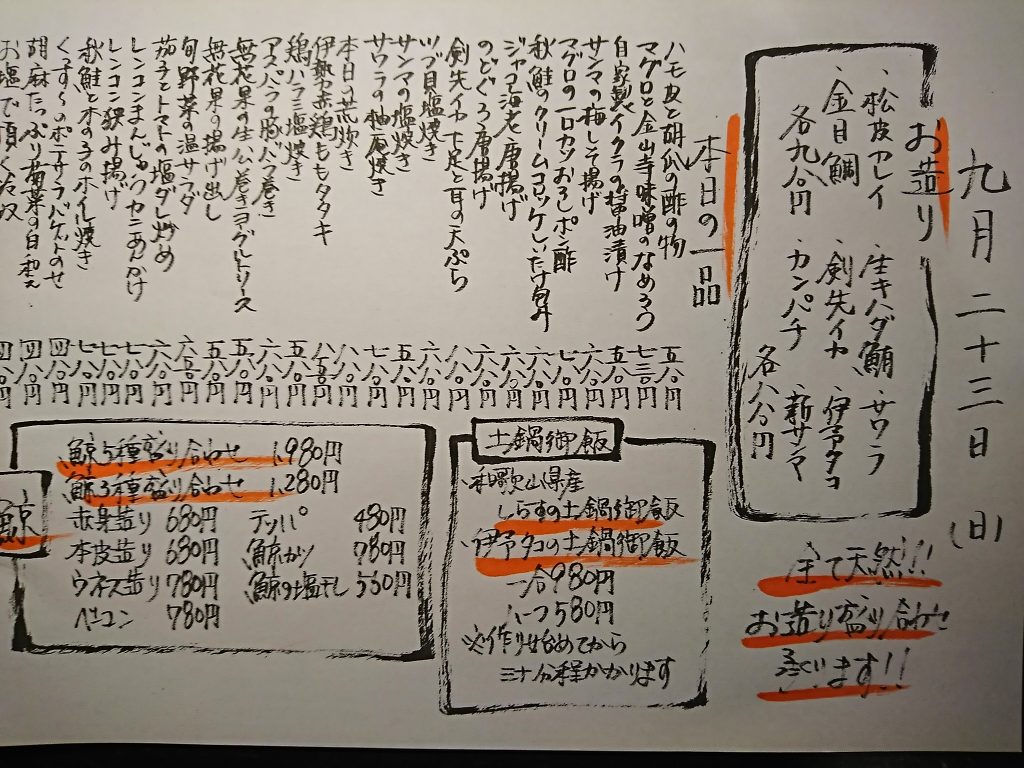 九月二十三日(日)
お造り
・松皮カレイ ・生キハダ鮪 サワラ
・金目鯛 ・剣先イカ ・伊予タコ
各九八〇円 ・カンパチ ・新サンマ
各八八〇円
全て天然!!
お造り盛り合わせ
承います!!
本日の一品
ハモ皮と胡瓜の酢の物 五八〇円
マグロと金山寺味噌のなめろう 七三〇円
自家製イクラの醤油漬け 五八〇円
サンマの梅しそ揚げ 六八〇円
マグロの一口カツおろしポン酢 七八〇円
秋鮭のクリームコロッケしいたけ包み 六八〇円
ジャコ海老唐揚げ 六八〇円
のどぐろ唐揚げ 六八〇円
剣先イカ下足と耳の天ぷら 八八〇円
ツブ貝塩焼き 六八〇円
サンマの塩焼き 五八〇円
サワラの柚庵焼き 七八〇円
本日の荒炊き 八八〇円
伊勢赤鶏ももタタキ 八五〇円
鶏ハラミ塩焼き 五八〇円
アスパラの豚バラ巻き 六八〇円
無花果の生ハム巻きヨーグルトソース 五八〇円
無花果の揚げ出し 五八〇円
旬野菜の温サラダ 六五〇円
茄子とトマトの塩ダレ炒め 六八〇円
レンコンまんじゅうカニあんかけ 七八〇円
レンコン挟み揚げ 七八〇円
秋鮭と木の子のホイル焼き 七八〇円
くんすくのポテサラバゲットのせ 四八〇円
胡麻たっぷり菊菜の白和え 四八〇円
お塩で頂く冷奴 四八〇円
土鍋御飯
・和歌山県産
しらすの土鍋御飯
・伊予タコの土鍋御飯
一合980円
ハーフ580円
※作り始めてから
三十分程かかります
鯨
鯨5種盛り合わせ 1,980円
鯨3種盛り合わせ 1,280円
赤身造り 680円 テッパ 480円
本皮造り 680円 鯨カツ 780円
ウネス造り 780円 鯨の塩干し 550円
ベーコン 780円